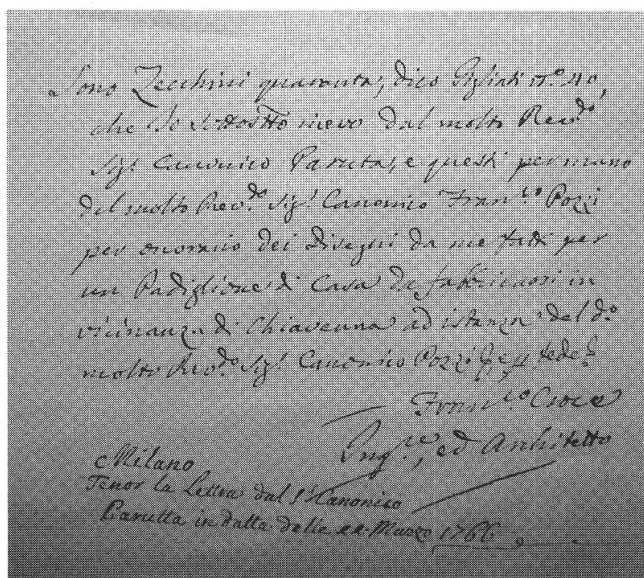 Sono Zecchini quaranta, dico Gigliati n.º 40,
che Io sottostto ricevo dal molto Rev.do
Sig.r Canonico Paruta, e questi per mano
del molto Rev.do Sig.r Canonico Fran.co Pozzi
per onorario dei disegni da me fatti per
un Padiglione di Casa da fabbricarsi in
vicinanza di Chiavenna ad istanza del d.o
molto Rev.do Sig.r Canonico Pozzi fede
Fran.co Croce
Ing.re, ed Architetto
Milano
Tenor la Lettra dal S.r Canonico
Parutta in datta delle Marzo 1766